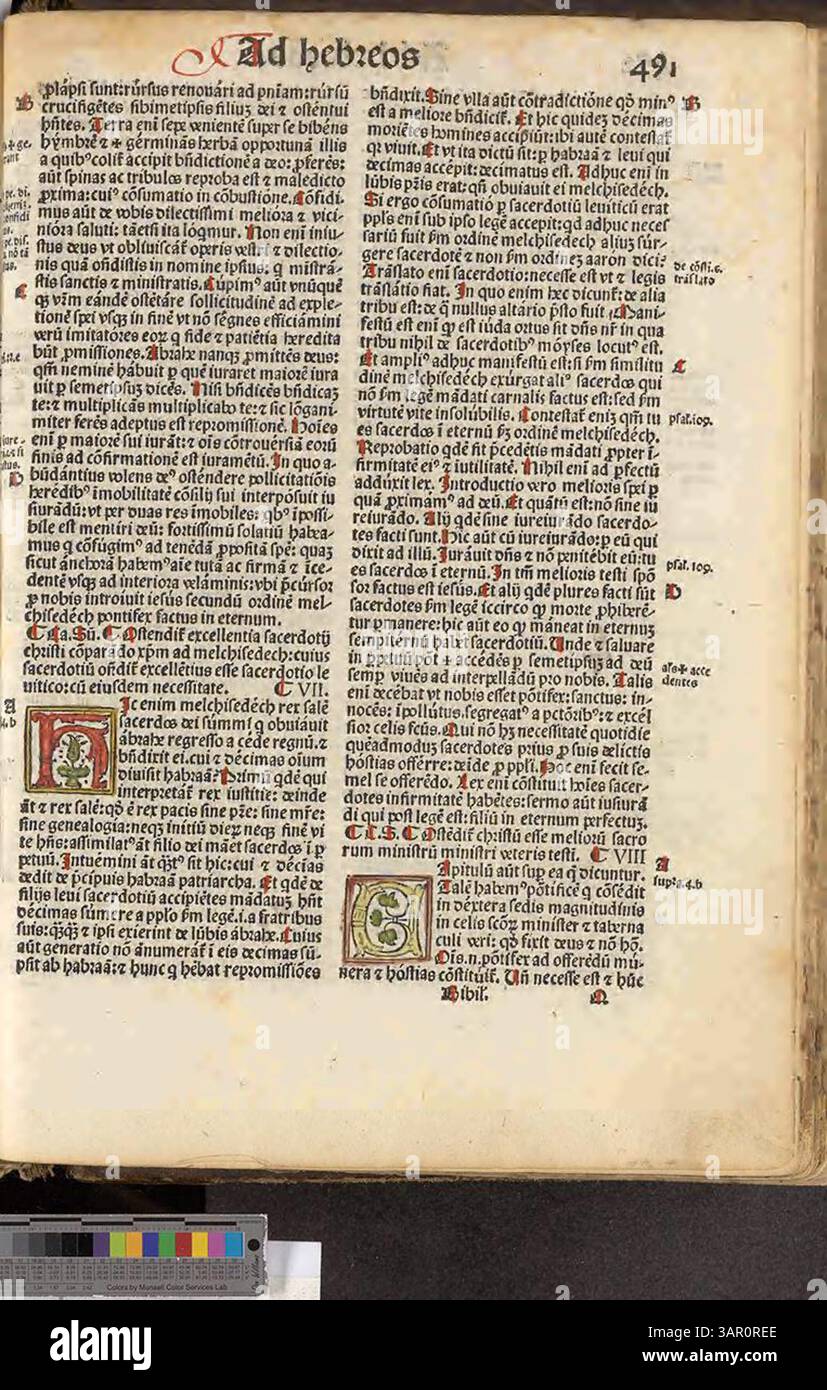 Ad hebreos
491
plāpsi sunt: rursus renovári ad pniam: rursū
crucifigētes sibimetipsis filiuȝ dei ⁊ ostentui
hñtes. Terra eni sepe veniente super se bibēns
hymbrē ⁊ germinās herbā opportunā illis
a quibꝰ colit accipit bñdictionē a deo: pferēs:
aūt spinas ac tribulos reproba est ⁊ maledicto
proxima: cuiꝰ cōsumatio in cōbustionē. Cōfidi-
mus aūt de vobis dilectissimi melióra ⁊ vici-
nióra saluti: tāetsi ita lóqmur. Non eni iniu-
stus deus vt obliuiscat operis vest. ⁊ dilectio-
nis quā oñdistis in nomine ipsius: q mistrā-
stis sanctis ⁊ ministratis. Cupimꝰ aūt vnūquē
qȝ vrm eāndē ostētáre sollicitudinē ad exple-
tionē spei vsqȝ in finē vt nō ségnes efficiámini
verū imitatóres eoꝝ q fide ⁊ patiētia heredita
būt pmissiones. Abrahe nanqȝ pmittēs deus:
qm neminē hábuit p quē iuraret maiorē iura
uit p semetipsuȝ dicēs. Nisi bñdicēs bñdicaȝ
te: ⁊ multiplicās multiplicabo te: ⁊ sic lōgani-
miter ferēs adeptus est repromissionē. Hoīes
eni p maiorē sui iurāt: ⁊ oīs cōtrouersiā eorū
finis ad cōfirmationē est iuramētū. In quo a-
būdāntius volens deꝰ ostēndere pollicitatióis
herédibꝰ īmobilitatē cōsilij sui interpósuit iu
siurādū: vt per duas res imobiles: qbꝰ īpossi-
bile est mentiri deū: fortissimū solatiū habea-
mus q cōfúgimꝰ ad tenēdā ppositā spē: quaȝ
sicut ánchorā habemꝰ aīe tutā ac firmā ⁊ īce-
dentē vsqȝ ad interiora velāminis: vbi pcursor
p nobis introiuit iesús secundū ordinē mel-
chisedech pontifex factus in eternum.
Ca. Sū. Ostendit excellentia sacerdotij
christi cōparādo xpm ad melchisedech: cuius
sacerdotiū oñdit excellētius esse sacerdotio le
uitico: cū eiusdem necessitate. VII.
A
4.b
Hic enim melchisedéch rex salē
sacerdos dei summi q obuiáuit
ábrahe regresso a cēde regnū. ⁊
bñdixit ei. cui ⁊ décimas oīum
diuisit habraā: Primū qdē qui
interpretāt rex iustitie: deinde
āt ⁊ rex salē: qđ ē rex pacis sine pre: sine mre:
sine genealogia: neqȝ initiū dieꝝ neqȝ finē vi
te hñs: assimilatꝰ āt filio dei māet sacerdos ī p
petuū. Intuemini āt qtꝰ sit hic: cui ⁊ décias
dedit de pcipuis habraā patriarcha. Et qdē de
filijs leui sacerdotiū accipiētes mādatuȝ hñt
décimas sūmere a pplo fm legē. i. a fratribus
suis: qȝqȝ ⁊ ipsi exierint de lūbis ábrahe. Cuius
aūt generatio nō ánumerāt ī eis decimas sū-
psit ab habraā: ⁊ hunc q hébat repromissiōes
bñdixit. Sine vlla aūt cōtradictiōne qđ minꝰ B
est a meliore bñdicit. Et hic quideȝ décimas
moriētes homines accipiūt: ibi autē contestat
qꝛ viuit. Et vt ita dictū sit: p habraā ⁊ leui qui
decimas accépit: decimatus est. Adhuc eni in
lūbis pris erat: qñ obuiauit ei melchisedéch.
Si ergo cōsumatio p sacerdotiū leuiticū erat
ppls eni sub ipso legē accepit: qd adhuc neces
sariū fuit fm ordinē melchisedech aliuȝ súr-
gere sacerdotē ⁊ non fm ordineȝ aaron dici:
Trāslato eni sacerdotio: necesse est vt ⁊ legis
trāslátio fiat. In quo enim hec dicunt: de alia
tribu est: de q nullus altário psto fuit. Mani-
festū est eni qꝛ est iúda ortus sit dñs nr in qua
tribu nihil de sacerdotibꝰ móyses locutꝰ est.
Et ampliꝰ adhuc manifestū est: si fm similitu
dinē melchisedéch exúrgat aliꝰ sacerdos qui
nō fm legē mādati carnalis factus est: sed fm
virtutē vite insolúbilis. Contestat enīȝ qm tu
es sacerdos ī eternū fȝ ordinē melchisedéch.
Reprobatio qdē fit pcedētis mādati propter ī-
firmitatē eiꝰ ⁊ īutilitatē. Nihil eni ad pfectū
addúxit lex. Introductio vero melioris spei p
quā próximamꝰ ad deū. Et quātū est: nō sine iu
reiurādo. Alij qdē sine iureiurādo sacerdo-
tes facti sunt. Hic aūt cū iureiurādo: p eū qui
dixit ad illū. Iuráuit dñs ⁊ nō penitébit eū: tu
es sacerdos ī eternū. In tm melioris testi spō
sor factus est iesus. Et alij qdē plures facti sūt
sacerdotes fm legē iccirco qꝛ morte phiberē-
tur pmanere: hic aūt eo qꝛ máneat in eternuȝ
sempiternū habet sacerdotiū. Unde ⁊ saluare
in ppetuū pōt accédēs p semetipsuȝ ad deū
semp viuēs ad interpellādū pro nobis. Talis
eni decébat vt nobis esset pōtifex: sanctus: in-
nocēs: īpollútus. segregatꝰ a pctóribꝰ: ⁊ excél
sior celis fctus. Qui nō hȝ necessitatē quotidie
quēadmoduȝ sacerdotes prius p suis delictis
hóstias offérre: deīde p ppli. Hoc eni fecit se-
mel se offerēdo. Lex eni cōstituit hoīes sacer-
dotes infirmitatē habētes: sermo aūt iusiurā
di qui post legē est: filiū in eternum perfectuȝ.
C. S. Ostēdit christū esse melioꝝ sacro
rum ministrū ministri veteris testi. VIII
Capitulū aūt sup ea q dicuntur.
Talē habemꝰ pōtificē q cōsédit
in déxtera sedis magnitudinis
in celis scōꝝ minister ⁊ taberna
culi veri: qđ fixit deus ⁊ nō hō.
Oīs. n. pōtifex ad offerēdū mú-
nera ⁊ hóstias cōstituit. Uñ necesse est ⁊ hūc
Bibil.
de cōsti. c.
trāslato
C
psal. 109.
psal. 109.
D
als accé
dentes
A
supra. 4. b
alamy
Image ID: 3AR0REE
www.alamy.com
Colors by Munsell Color Services Lab